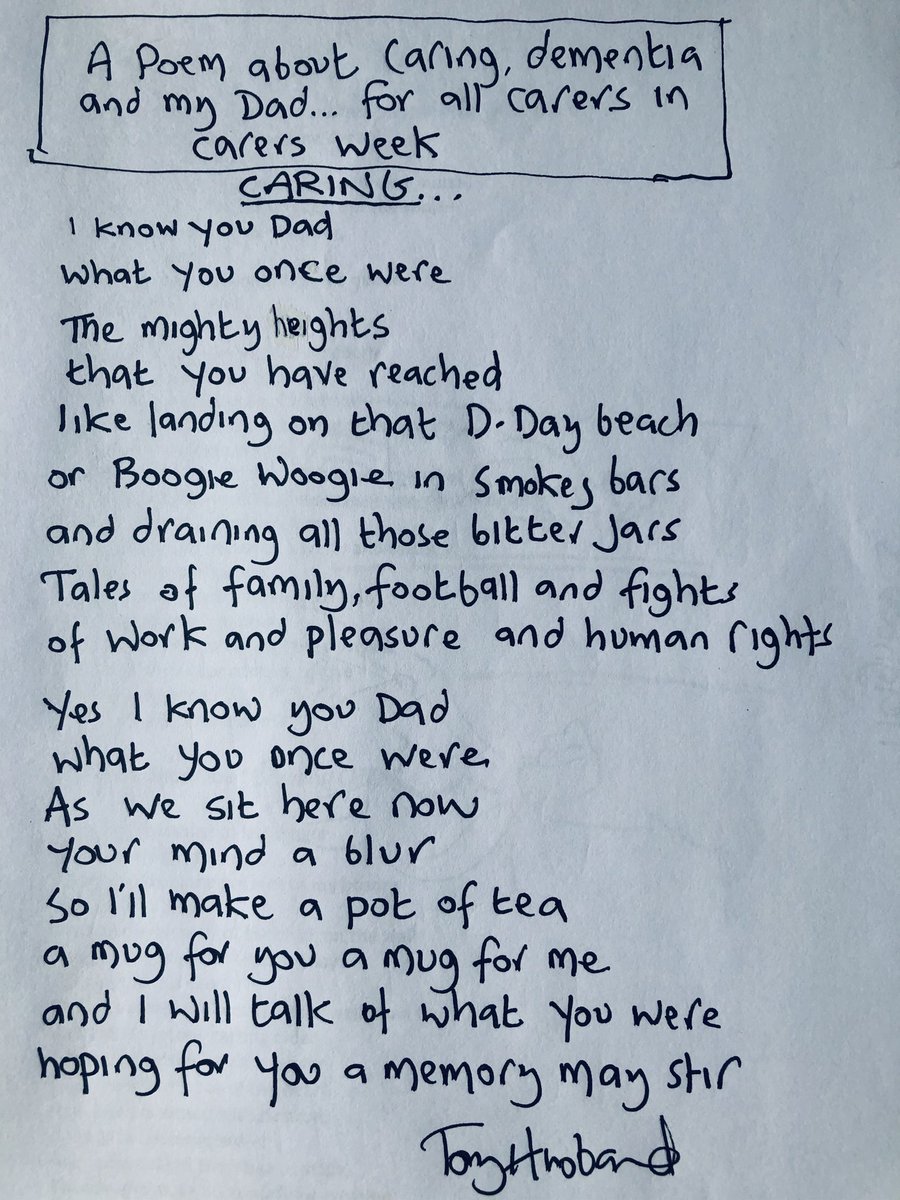 A Poem about Caring, dementia
and my Dad... for all carers in
carers week
CARING...
I know you Dad
what you once were
The mighty heights
that you have reached
like landing on that D-Day beach
or Boogie Woogie in smokey bars
and draining all those bitter jars
Tales of family, football and fights
of work and pleasure and human rights
Yes I know you Dad
what you once were
As we sit here now
your mind a blur
So I'll make a pot of tea
a mug for you a mug for me
and I will talk of what you were
hoping for you a memory may stir
Tony Husband